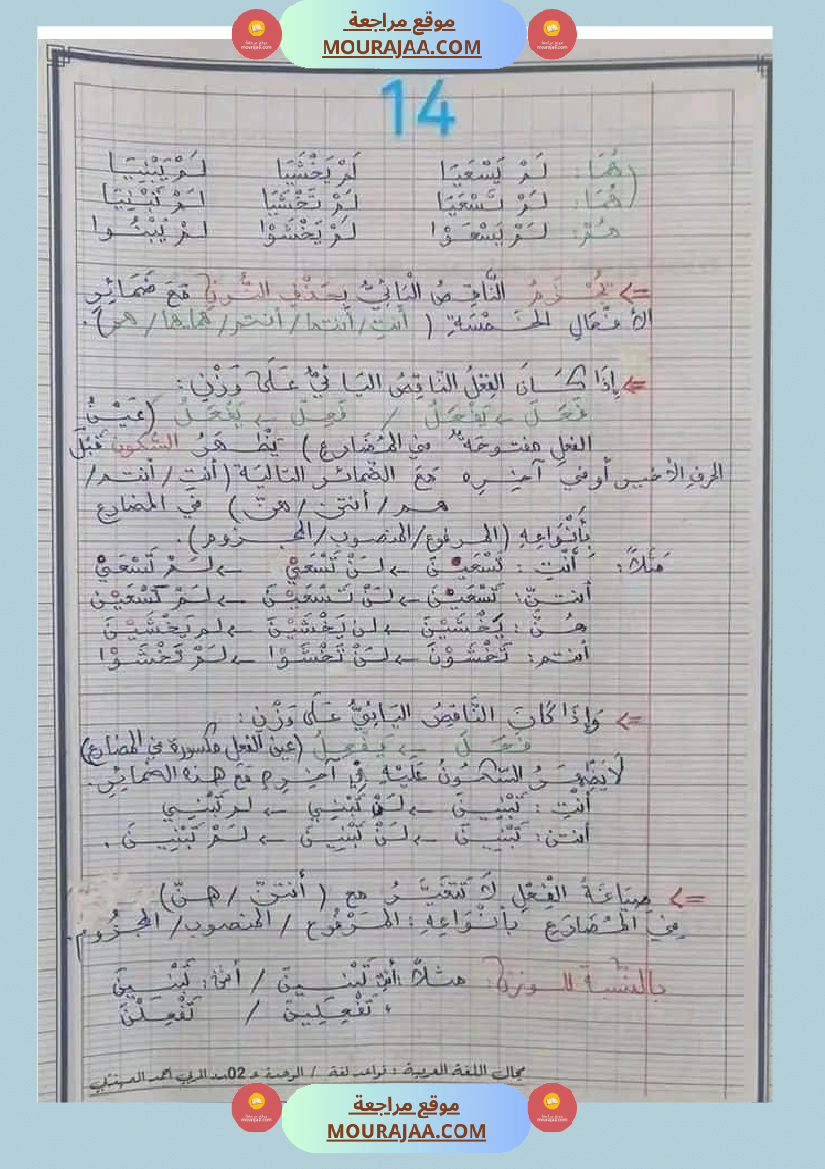 موقع مراجعة
MOURAJAA.COM
14
هُمَا: لَمْ يَسْعَيَا لَمْ يَخْشَيَا لَمْ يَبْنِيَا
هُمَا: لَمْ تَسْعَيَا لَمْ تَخْشَيَا لَمْ تَبْنِيَا
هُمْ: لَمْ يَسْعَوْا لَمْ يَخْشَوْا لَمْ يَبْنُوا
=> يُجْزَمُ النَّاقِصُ الْيَائِيُّ بِحَذْفِ النُّونِ مَعَ ضَمَائِرِ
الأَفْعَالِ الخَمْسَةِ (أنتِ/أنتما/أنتم/هما،هما/هم).
=> إِذَا كَانَ الفِعْلُ النَّاقِصُ اليَائِيُّ عَلَى وَزْنِ:
فَعَلَ ← يَفْعَلُ / فَعِلَ ← يَفْعَلُ (عَيْنُ
الفعلِ مفتوحَةٌ في المُضَارع) يَظْهَرُ السُّكُونُ قَبْلَ
الحرفِ الأخير أو في آخِرِه مَعَ الضّمائر التاليَة (أنتِ/أنتم/
هم/أنتنّ/هنّ) في المضارع
بِأَنْوَاعِهِ (المرفوع/المنصوب/المجزوم).
مَثَلاً: أَنْتِ: تَسْعَيْنَ ← لَنْ تَسْعَيْ ← لَمْ تَسْعَيْ
أنتنّ: تَسْعَيْنَ ← لَنْ تَسْعَيْنَ ← لَمْ تَسْعَيْنَ
هُنَّ: يَخْشَيْنَ ← لن يَخْشَيْنَ ← لم يَخْشَيْنَ
أنتم: تَخْشَوْنَ ← لَنْ تَخْشَوْا ← لَمْ تَخْشَوْا
=> وَإِذَا كَانَ النَّاقِصُ اليَائِيُّ عَلَى وَزْنِ:
فَعَلَ ← يَفْعِلُ (عين الفعل مكسورة في المضارع)
لَا يَظْهَرُ السُّكُونُ عَلَيْهِ فِي آخِرِهِ مَعَ هذه الضّمائِرِ.
أَنْتِ: تَبْنِينَ ← لَنْ تَبْنِي ← لم تَبْنِي
أنتن: تَبْنِينَ ← لَنْ تَبْنِينَ ← لَمْ تَبْنِينَ.
=> صِيَاغَةُ الْفِعْلِ لَا تَتَغَيَّرُ مع (أنتنّ/هنّ)
فِي المُضَارِع بِأَنْوَاعِهِ: المَرْفُوع/المنصوب/المجزُوم.
بالنّسْبة للوزن: مثلاً: أنتِ تَبْنِينَ / أنتنّ: تَبْنِينَ
تَفْعِلِينَ / تَفْعِلْنَ
مجال اللغة العربية: قواعد لغة / الوحدة 02
موقع مراجعة
MOURAJAA.COM